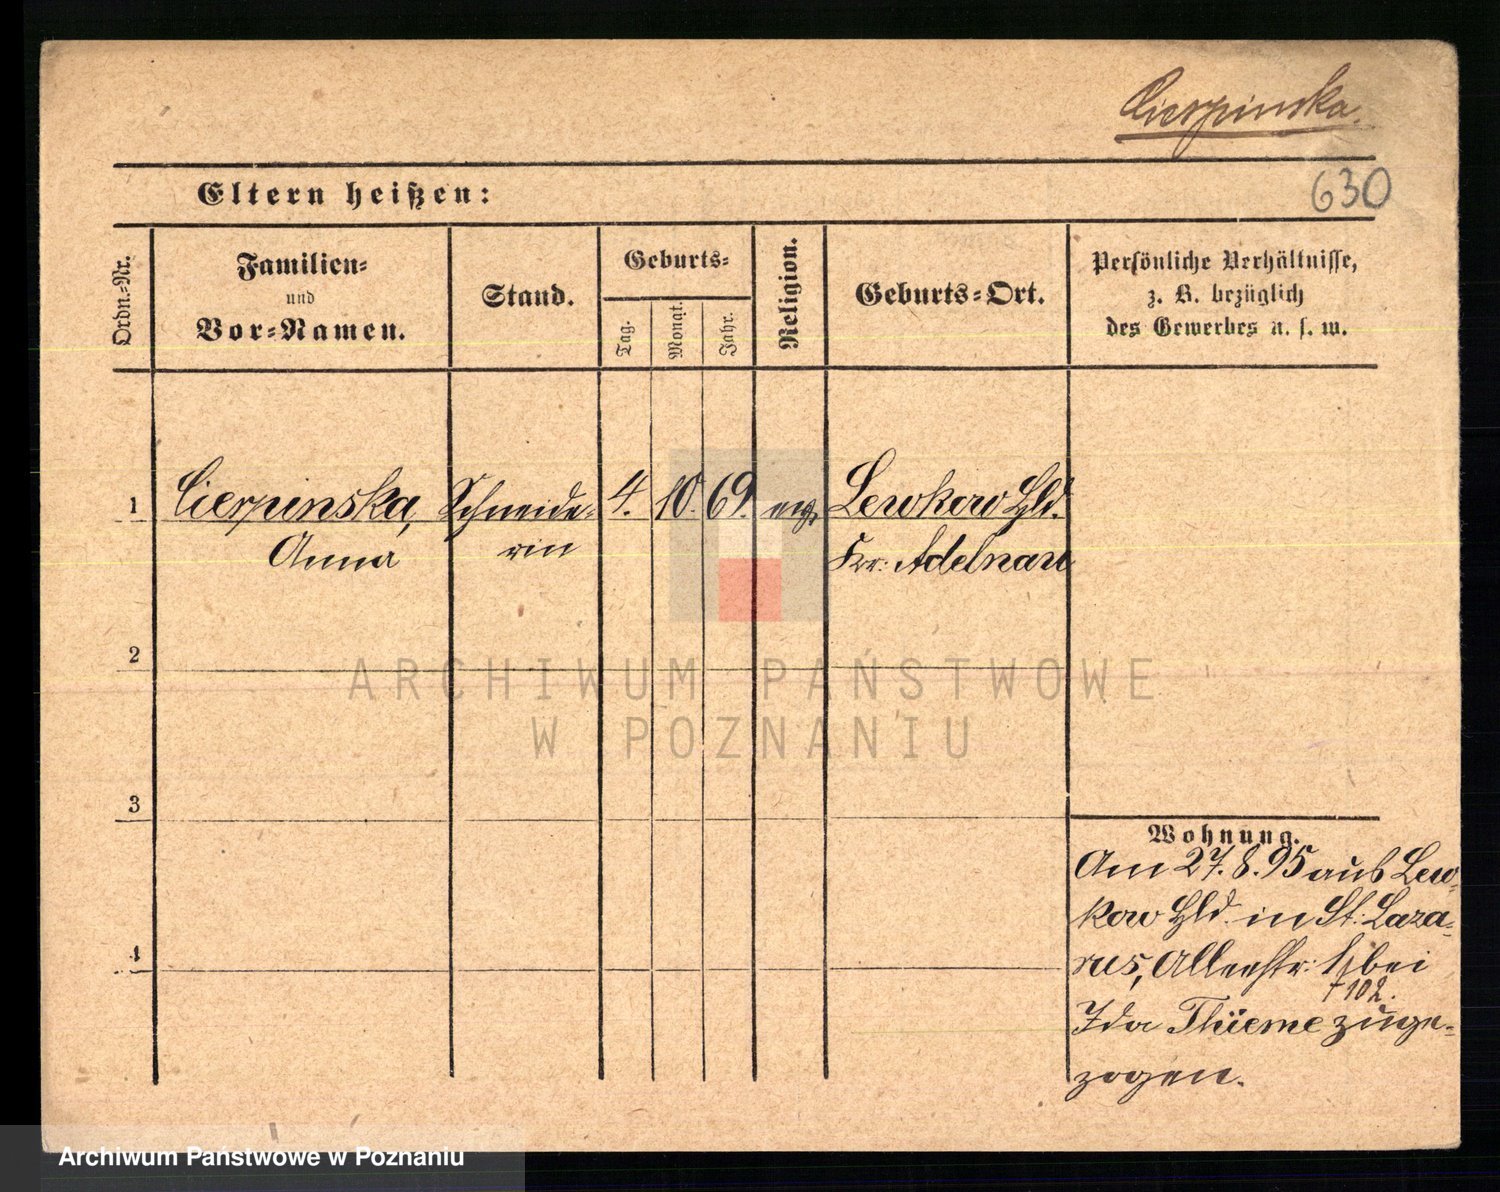 Cierpinska.
630
Eltern heißen:
Ordn.-Nr.
Familien-
und
Vor-Namen.
Stand.
Geburts-
Tag.
Monat.
Jahr.
Religion.
Geburts-Ort.
Persönliche Verhältnisse,
z. B. bezüglich
des Gewerbes u. s. w.
1 Cierpinska, Schneide- 4. 10. 69. evg. Lewkow Hld.
Anna rin Kr: Adelnau
2
ARCHIWUM PAŃSTWOWE
W POZNANIU
3
Wohnung.
Am 27. 8. 95 aus Lew-
kow Hld. in St: Laza-
rus, Alleestr: bei
Ida Thieme zuge-
zogen.
4
Archiwum Państwowe w Poznaniu